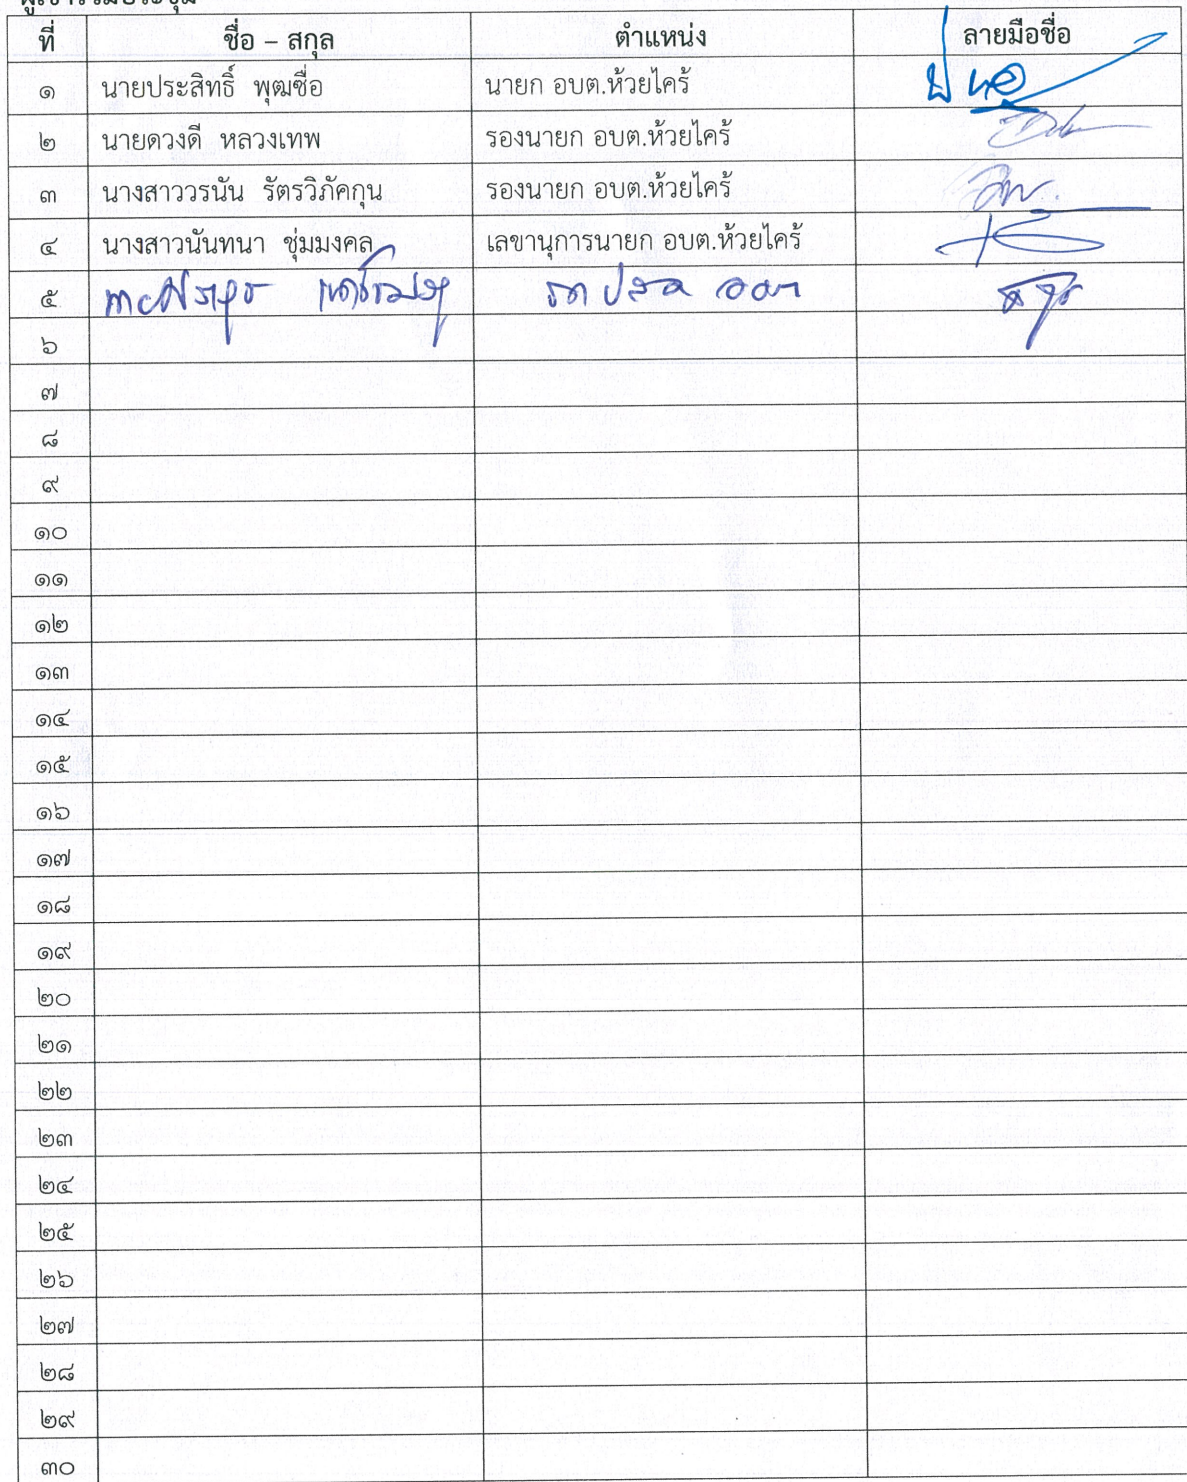 ผู้เข้าร่วมประชุม
ที่ ชื่อ – สกุล ตำแหน่ง ลายมือชื่อ
๑ นายประสิทธิ์ พุฒซื่อ นายก อบต.ห้วยไคร้
๒ นายดวงดี หลวงเทพ รองนายก อบต.ห้วยไคร้
๓ นางสาววรนัน รัตรวิภัคกุน รองนายก อบต.ห้วยไคร้
๔ นางสาวนันทนา ชุ่มมงคล เลขานุการนายก อบต.ห้วยไคร้
๕
๖
๗
๘
๙
๑๐
๑๑
๑๒
๑๓
๑๔
๑๕
๑๖
๑๗
๑๘
๑๙
๒๐
๒๑
๒๒
๒๓
๒๔
๒๕
๒๖
๒๗
๒๘
๒๙
๓๐